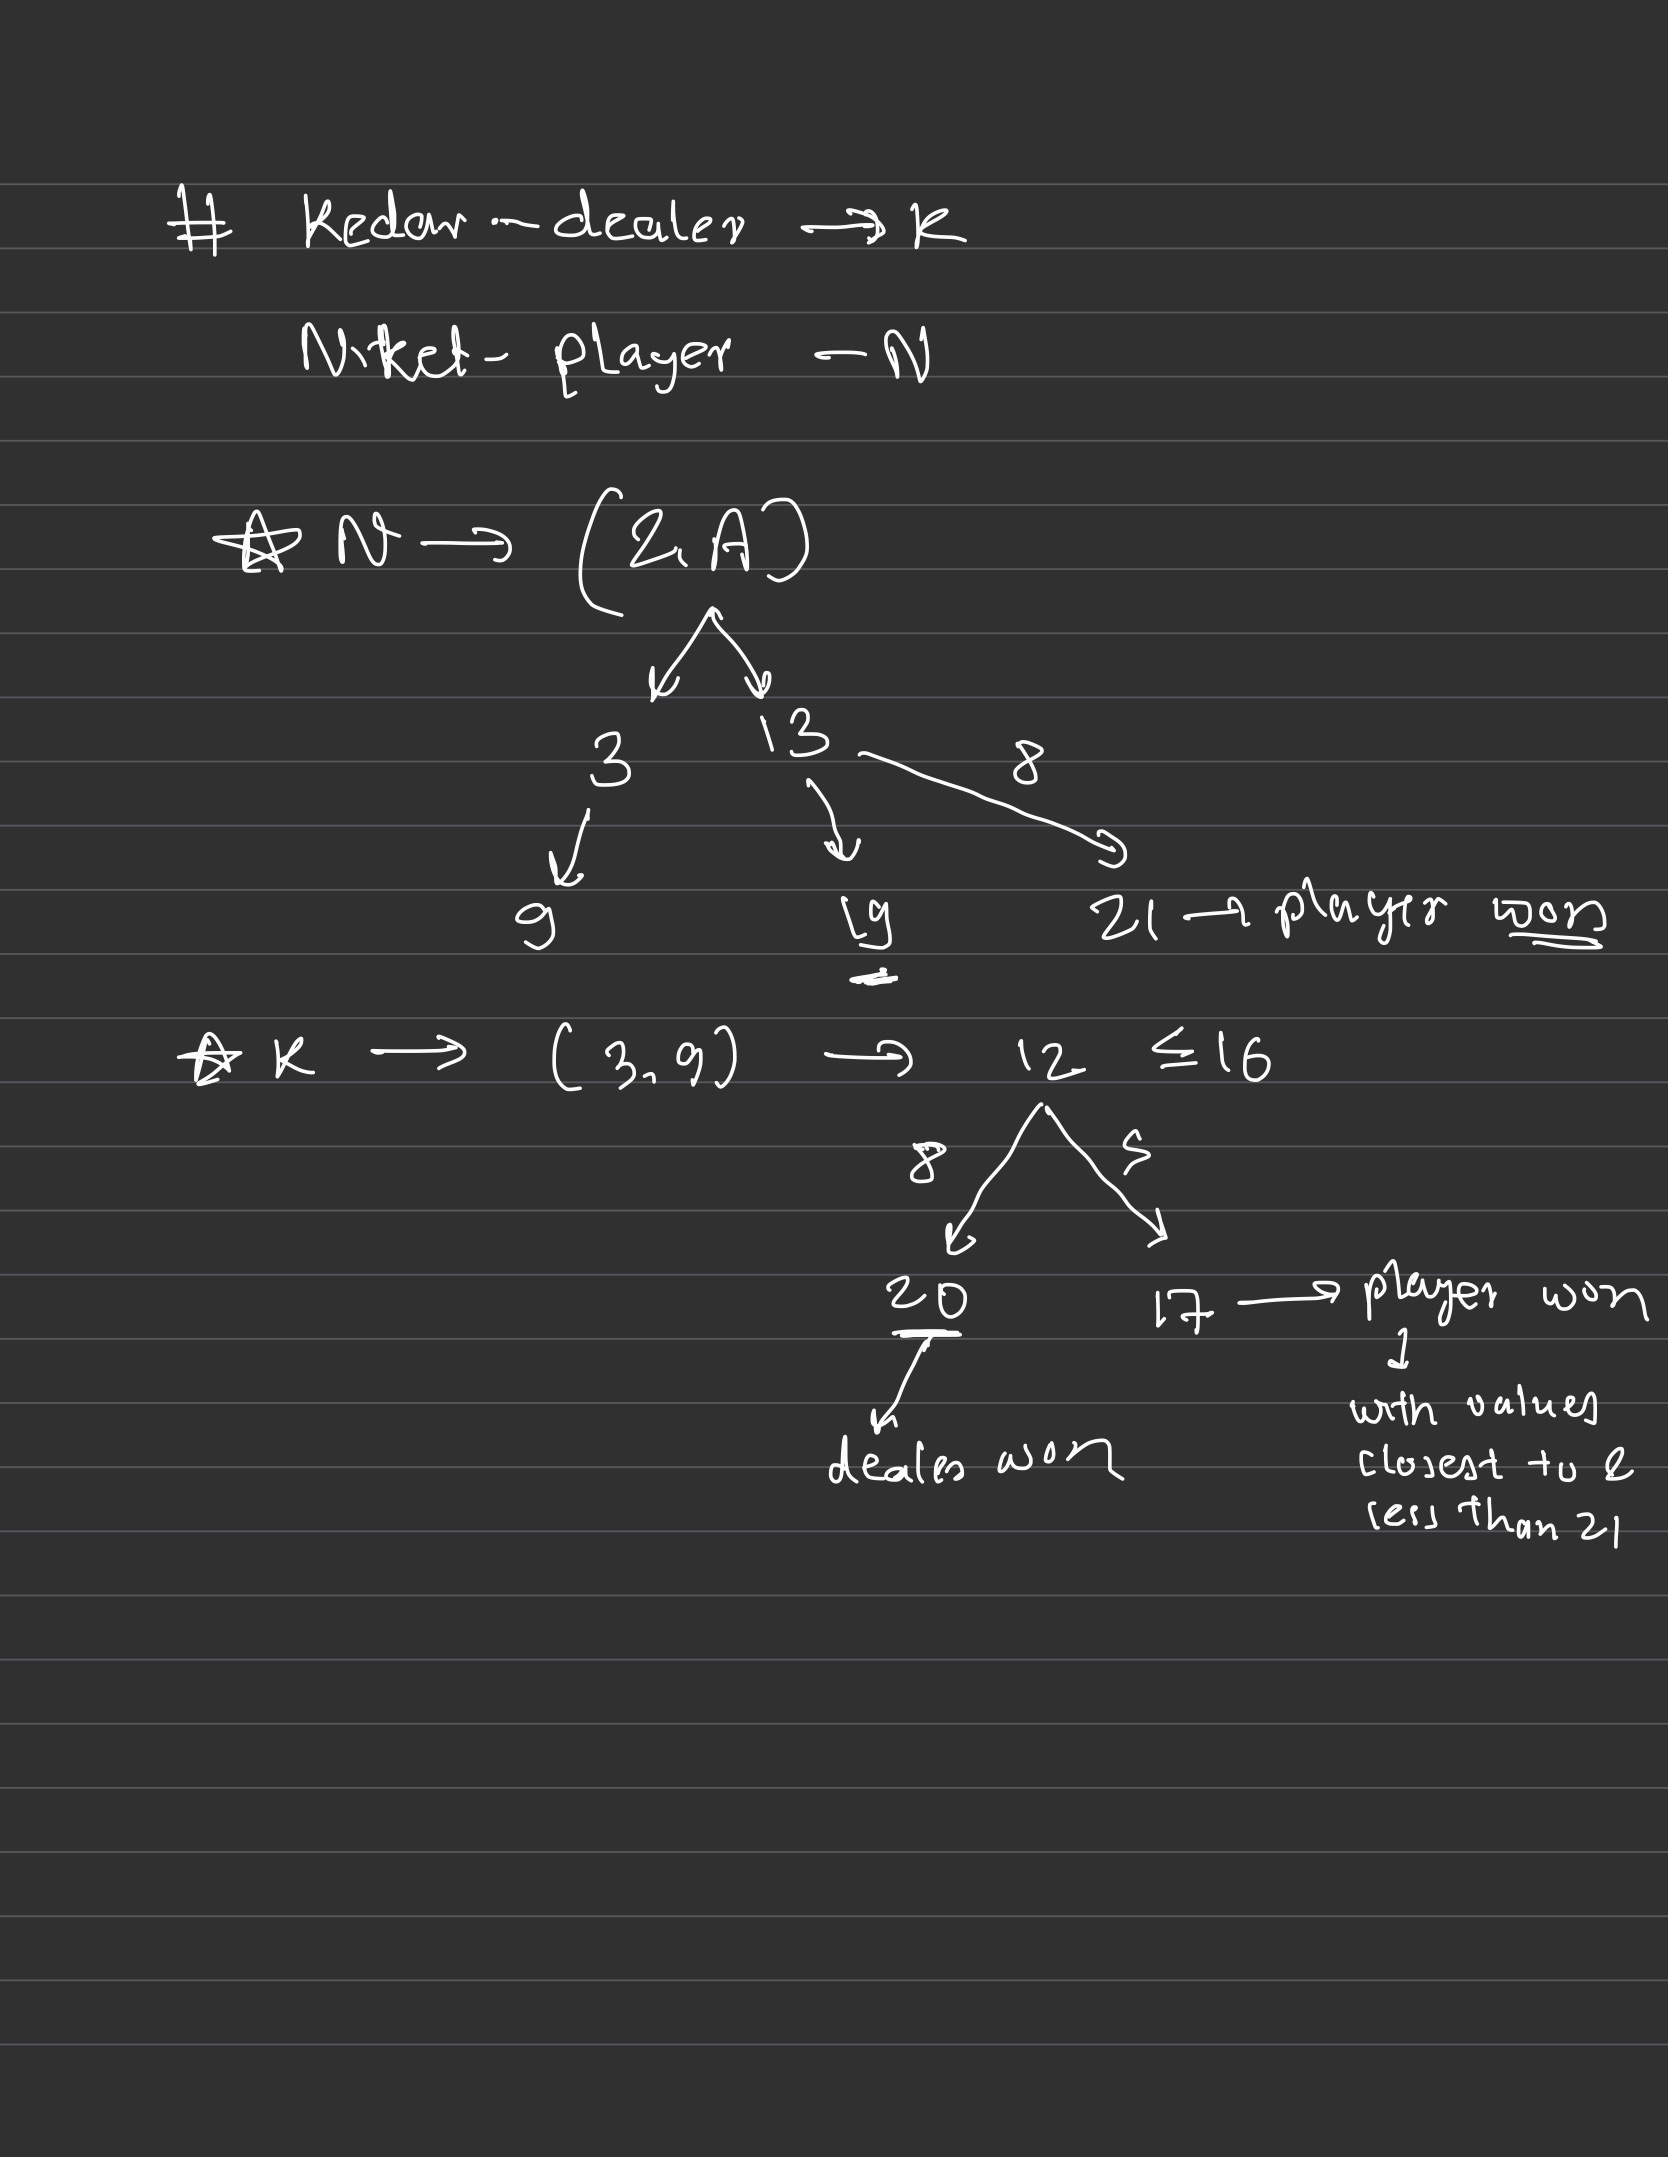 # Kedar - dealer → K
Niket - player - N
☆ N → (2, A)
3 13 8
9 19 21 → player won
☆ K → (3, 9) → 12 ≤ 16
8 5
20 17 → player won
with values
dealer won closest to &
less than 21